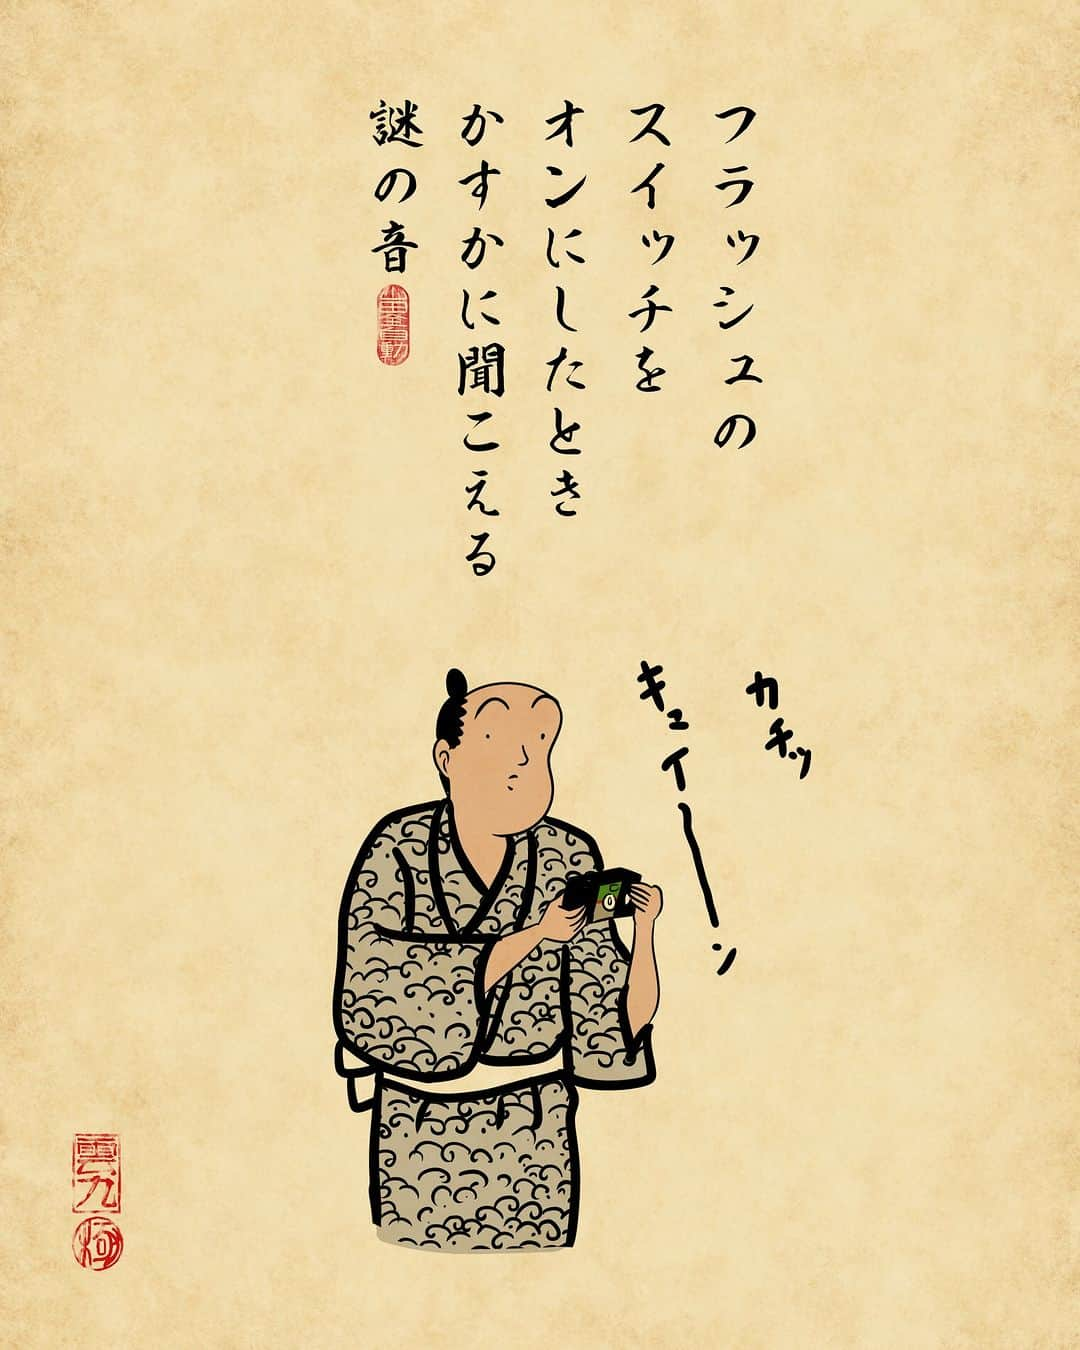 フラッシュの
スイッチを
オンにしたとき
かすかに聞こえる
謎の音
カチッ
キュイーーン